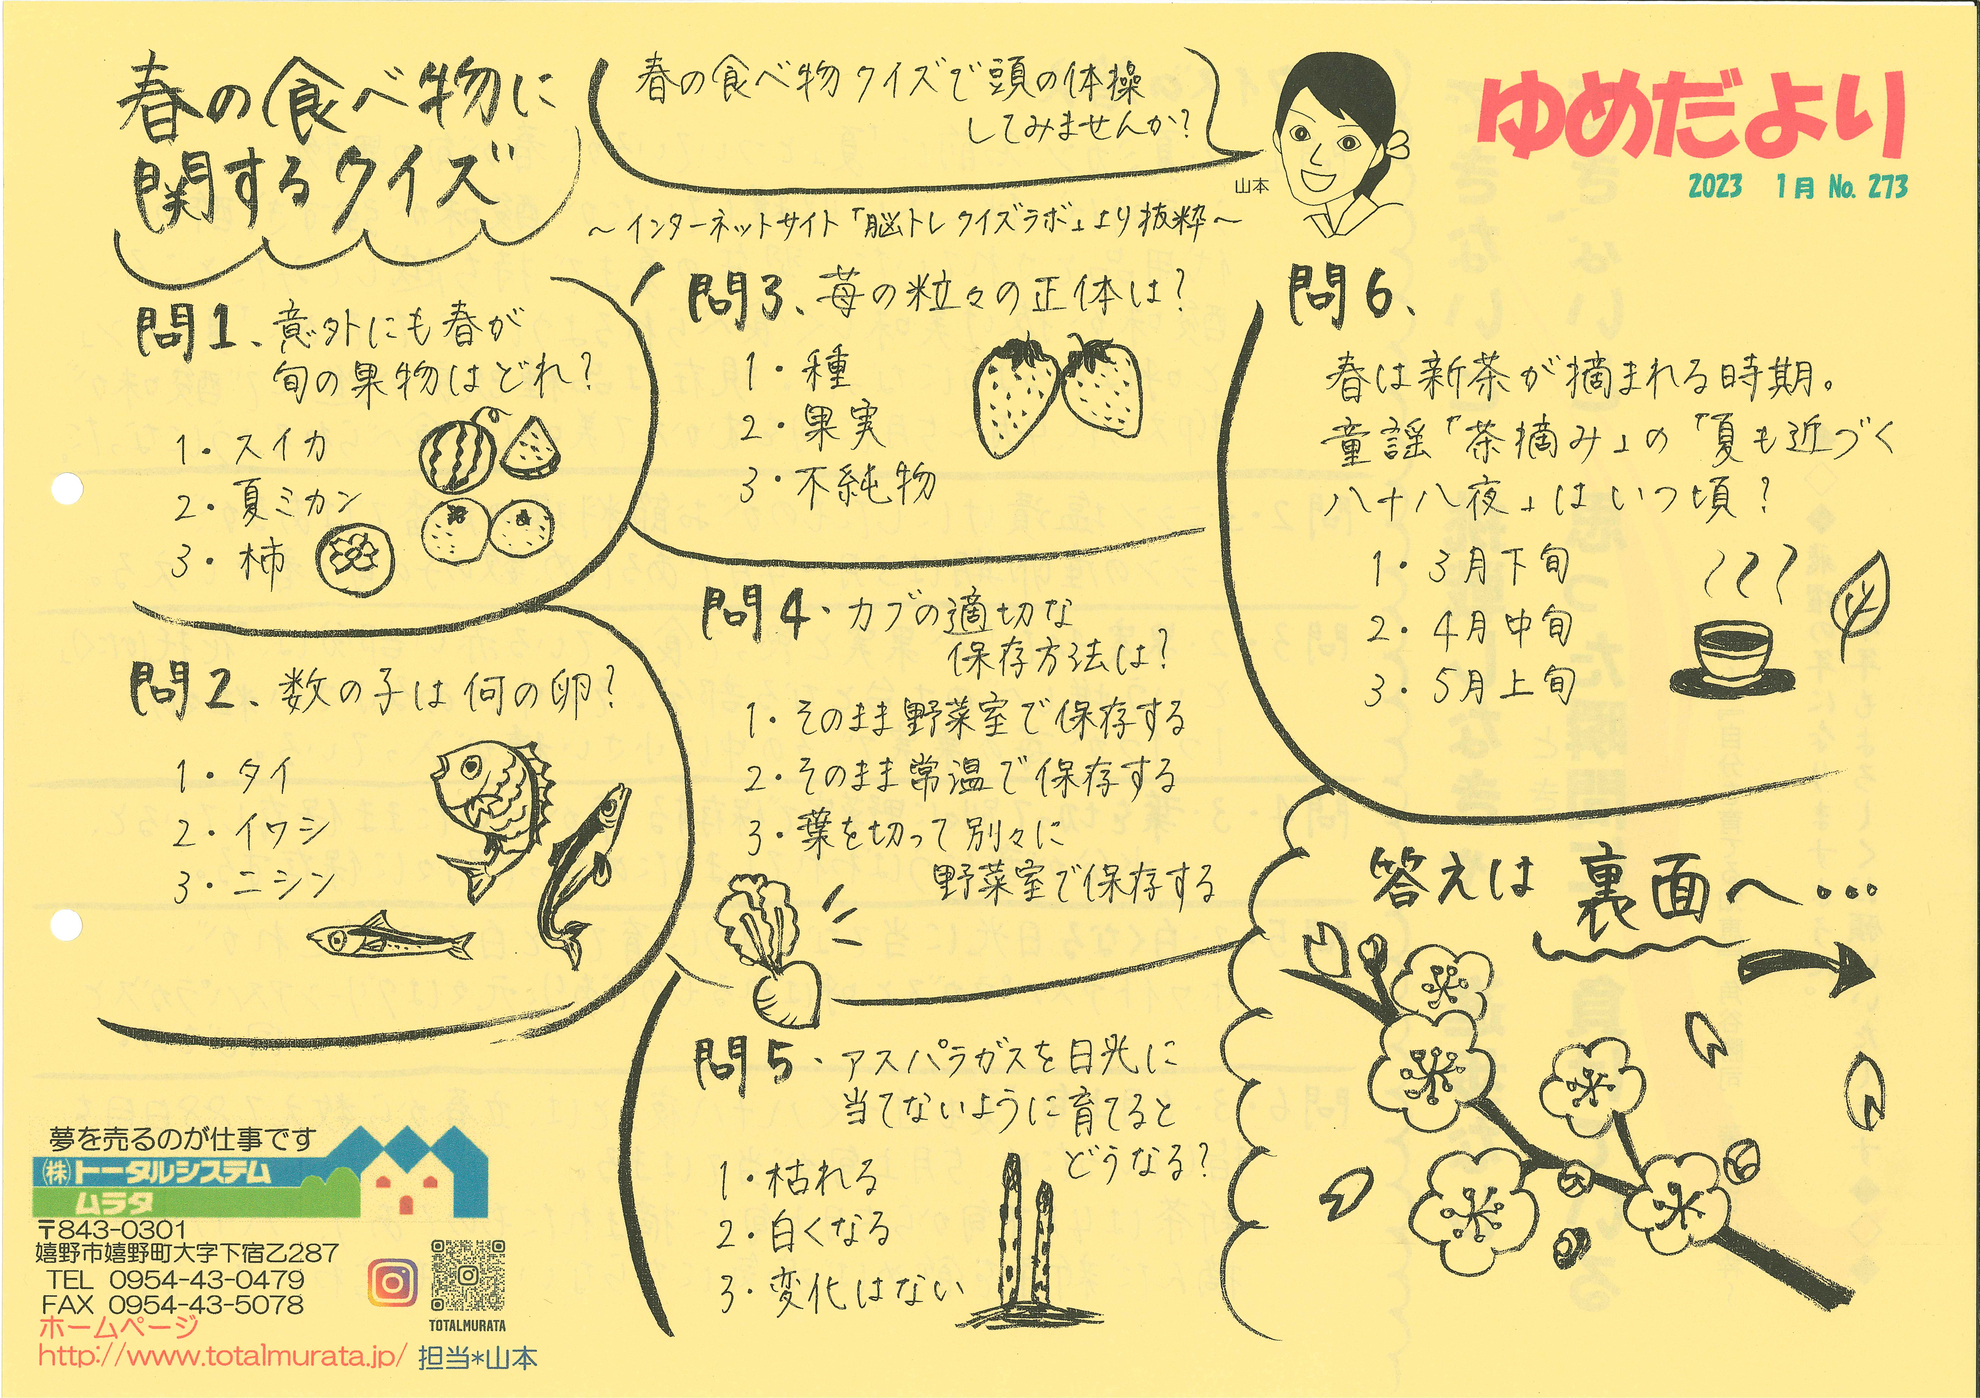 春の食べ物に
関するクイズ
春の食べ物クイズで頭の体操
してみませんか?
山本
ゆめだより
2023 1月 No. 273
～インターネットサイト「脳トレクイズラボ」より抜粋～
問1、意外にも春が
旬の果物はどれ?
1・スイカ
2・夏ミカン
3・柿
問2、数の子は何の卵?
1・タイ
2・イワシ
3・ニシン
問3、苺の粒々の正体は?
1・種
2・果実
3・不純物
問4・カブの適切な
保存方法は?
1・そのまま野菜室で保存する
2・そのまま常温で保存する
3・葉を切って別々に
野菜室で保存する
問5・アスパラガスを日光に
当てないように育てると
どうなる?
1・枯れる
2・白くなる
3・変化はない
問6、
春は新茶が摘まれる時期。
童謡「茶摘み」の「夏も近づく
八十八夜」はいつ頃?
1・3月下旬
2・4月中旬
3・5月上旬
答えは裏面へ…
夢を売るのが仕事です
㈱トータルシステム
ムラタ
〒843-0301
嬉野市嬉野町大字下宿乙287
TEL 0954-43-0479
FAX 0954-43-5078
ホームページ
http://www.totalmurata.jp/ 担当*山本
TOTALMURATA